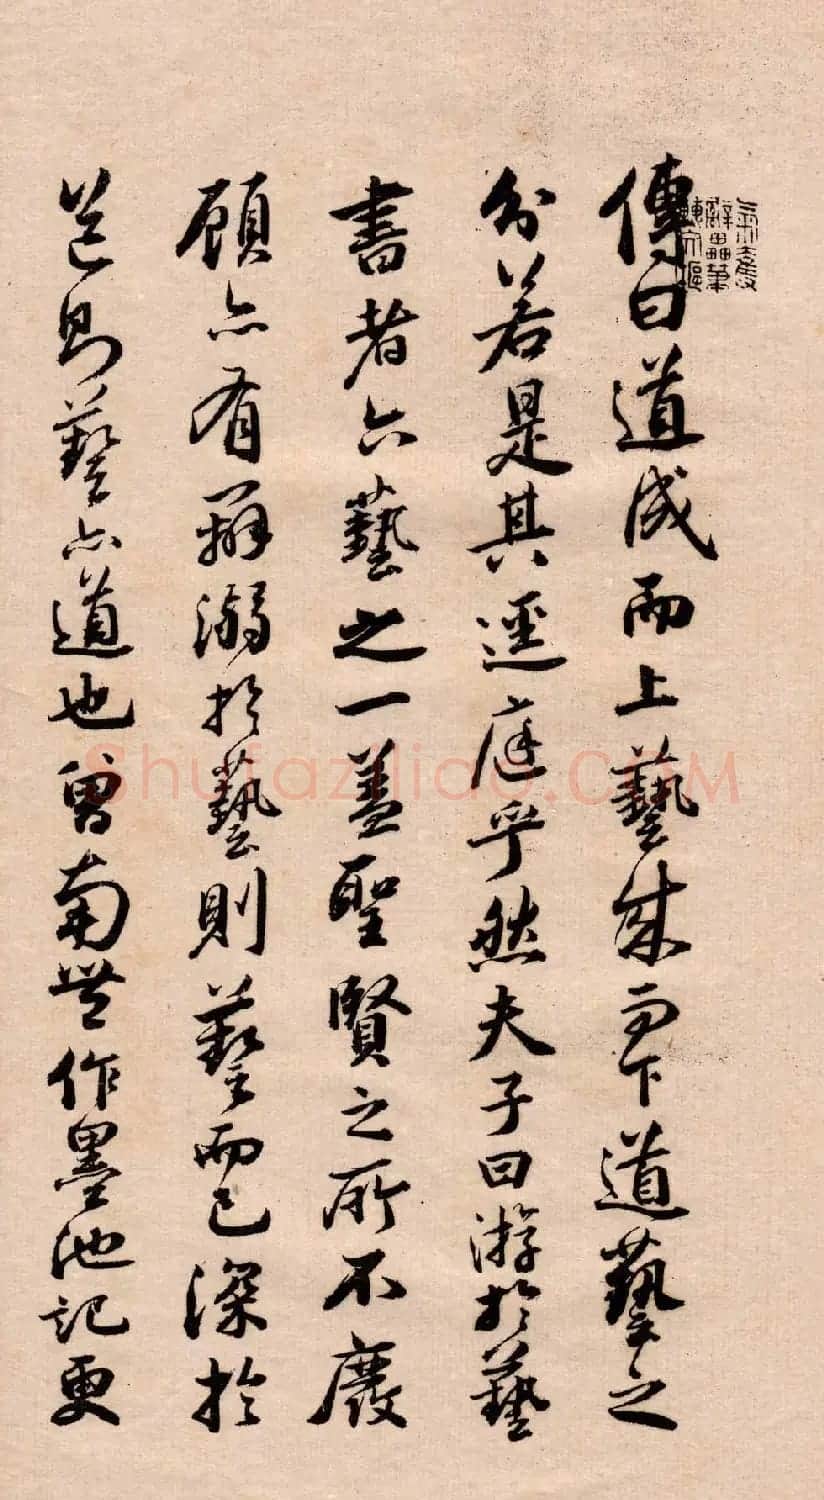 傳曰道成而上藝成而下道藝之
分若是其逕庭乎然夫子曰游於藝
書者六藝之一蓋聖賢之所不廢
顧亦有辨溺於藝則藝而已深於
道則藝亦道也曾南豐作墨池記更
Shufaziliao.COM